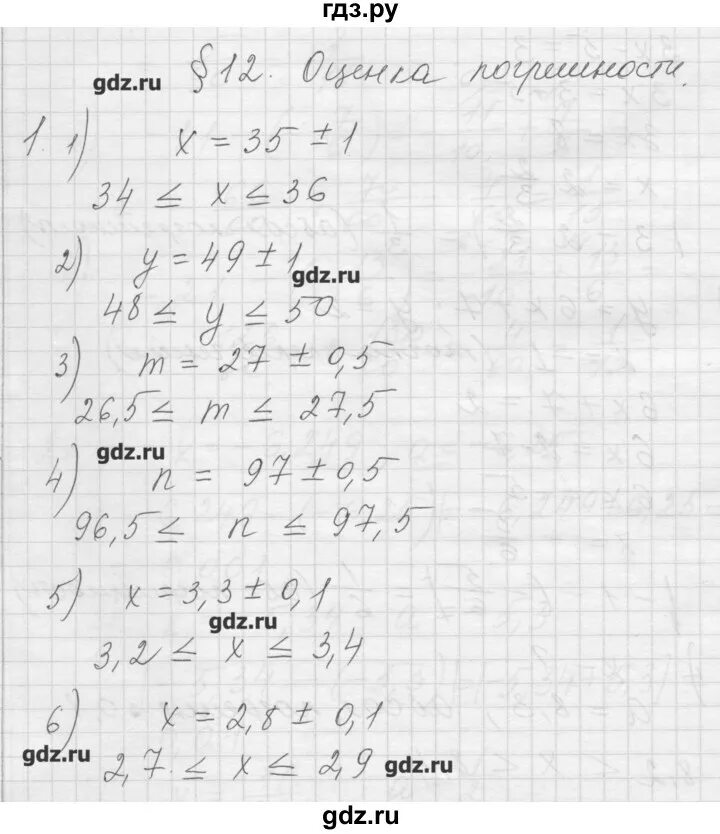 гдз.ру
§12. Оценка погрешности.
gdz.ru
1. 1) x = 35 ± 1
34 ≤ x ≤ 36
2) y = 49 ± 1
gdz.ru
48 ≤ y ≤ 50
3) m = 27 ± 0,5
26,5 ≤ m ≤ 27,5
gdz.ru
4) n = 97 ± 0,5
96,5 ≤ n ≤ 97,5
5) x = 3,3 ± 0,1
gdz.ru
3,2 ≤ x ≤ 3,4
6) x = 2,8 ± 0,1
gdz.ru
2,7 ≤ x ≤ 2,9 gdz.ru
gdz.ru